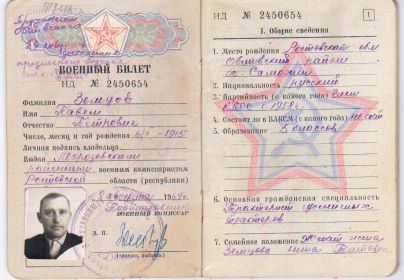 ВОЕННЫЙ БИЛЕТ
НД № 2450654
Фамилия Земцов
Имя Павел
Отчество Петрович
Число, месяц и год рождения 6/I-1915
Личная подпись владельца
Выдан Морозовским
районным военным комиссариатом
Ростовской области (республики)
8 августа 1964 г.
ВОЕННЫЙ КОМИССАР
М. П.
НД № 2450654
1
I. Общие сведения
1. Место рождения Ростовская обл
Обливский район
2. Национальность русский
3. Партийность (с какого года) Член
КПСС с 1958 г.
4. Состоит ли в ВЛКСМ (с какого года) не сост
5. Образование 5 классов
6. Основная гражданская специальность
Тракторист
тракторов
7. Семейное положение Женат жена
Земцова Нина